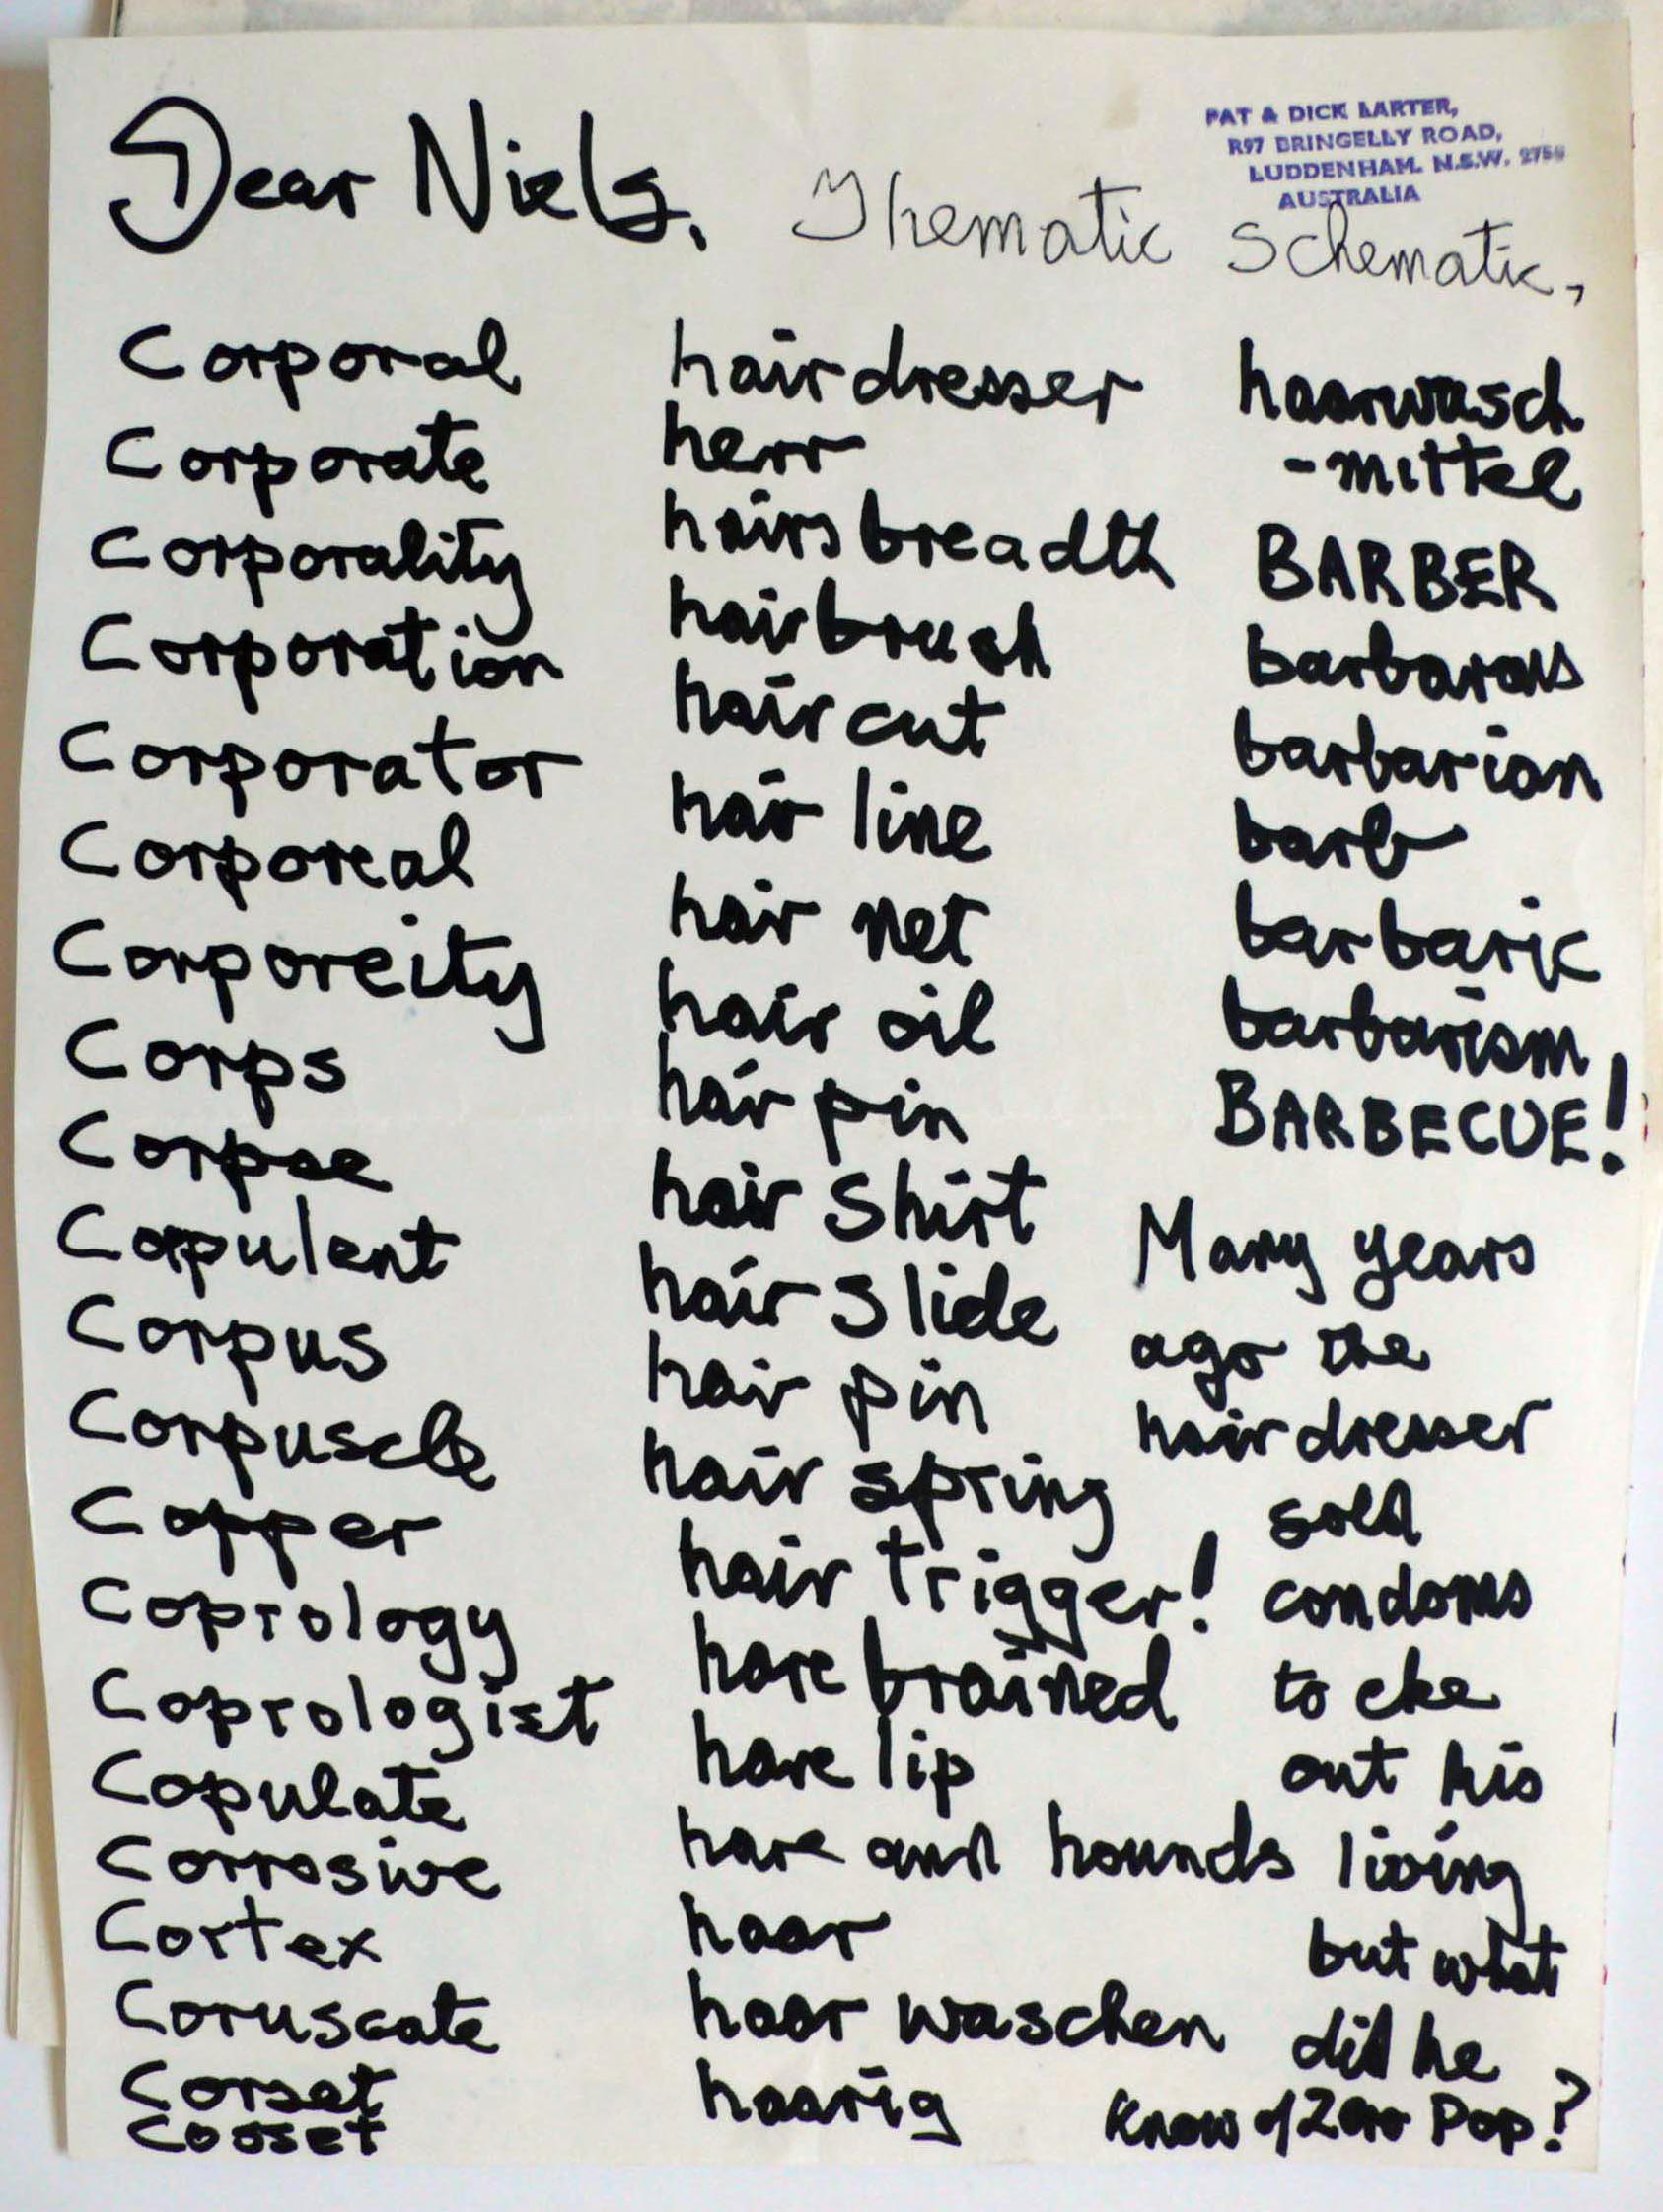 PAT & DICK LARTER,
R97 BRINGELLY ROAD,
LUDDENHAM. N.S.W. 2756
AUSTRALIA
Dear Niels,
Thematic Schematic,
Corporal
Corporate
Corporality
Corporation
Corporator
Corporeal
Corporeity
Corps
Corpse
Corpulent
Corpus
Corpuscle
Copper
Coprology
Coprologist
Copulate
Corrosive
Cortex
Coruscate
Corset
Cosset
hairdresser
herr
hairsbreadth
hairbrush
haircut
hair line
hair net
hair oil
hair pin
hair shirt
hair slide
hair pin
hair spring
hair trigger!
harebrained
hare lip
hare and hounds
haar
haar waschen
haarig
haarwasch
-mittel
BARBER
barbarous
barbarian
barb
barbaric
barbarism
BARBECUE!
Many years
ago the
hairdresser
sold
condoms
to eke
out his
living
but what
did he
know of Zero Pop?